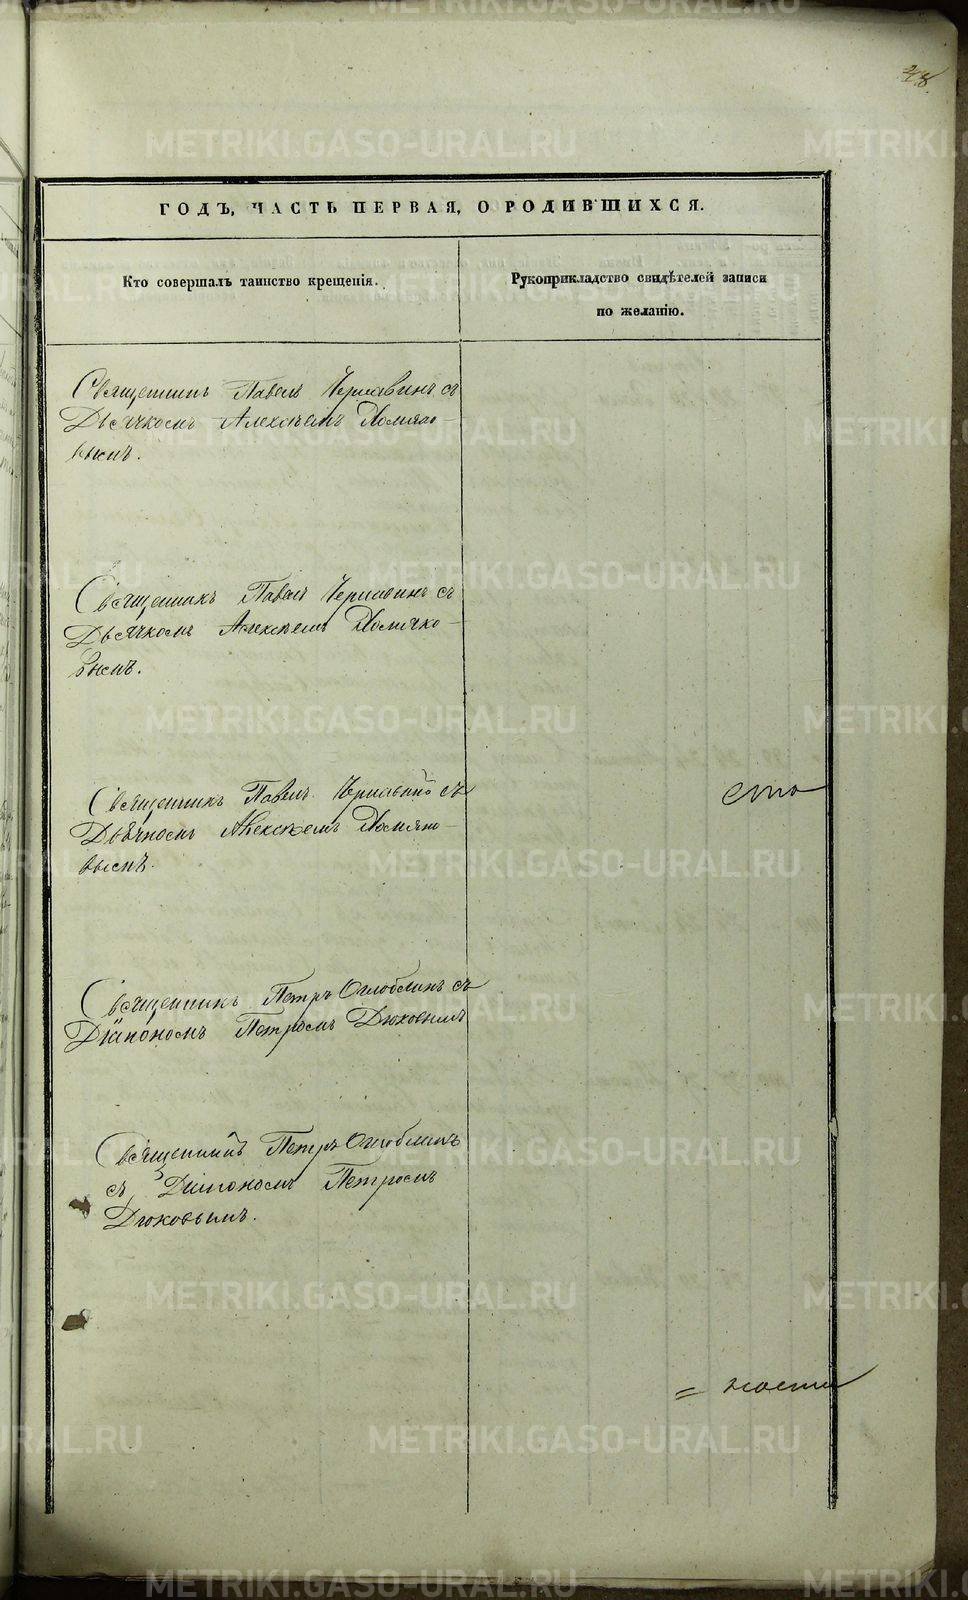 48.
ГОДЪ, ЧАСТЬ ПЕРВАЯ, О РОДИВШИХСЯ.
Кто совершалъ таинство крещенія.
Рукоприкладство свидѣтелей записи
по желанію.
Священникъ Павелъ Чернавинъ съ
Дьячкомъ Алексѣемъ Хомяко-
вымъ.
Священникъ Павелъ Чернавинъ съ
Дьячкомъ Алексѣемъ Хомяко-
вымъ.
Священникъ Павелъ Чернавинъ съ
Дьячкомъ Алексѣемъ Хомяко-
вымъ.
сто
Священникъ Петръ Оглоблинъ съ
Діакономъ Петромъ Дюковымъ
Священникъ Петръ Оглоблинъ
съ Діакономъ Петромъ
Дюковымъ.
= ности
METRIKI.GASO-URAL.RU